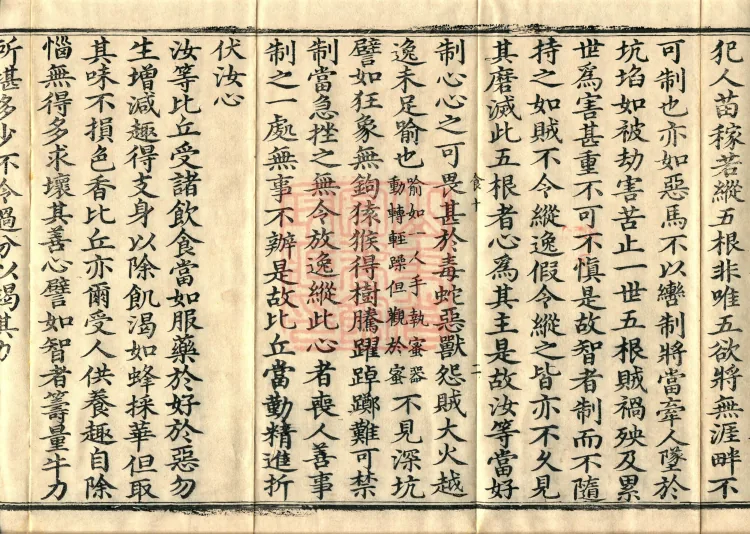 犯人苗稼若縱五根非唯五欲將無涯畔不
可制也亦如惡馬不以轡制將當牽人墜於
坑埳如被劫害苦止一世五根賊禍殃及累
世爲害甚重不可不愼是故智者制而不隨
持之如賊不令縱逸假令縱之皆亦不久見
其磨滅此五根者心爲其主是故汝等當好
食十 二
制心心之可畏甚於毒蛇惡獸怨賊大火越
逸未足喻也喻如一人手執蜜器動轉輕躁但觀於蜜不見深坑
譬如狂象無鉤猿猴得樹騰躍踔躑難可禁
制當急挫之無令放逸縱此心者喪人善事
制之一處無事不辦是故比丘當勤精進折
伏汝心
汝等比丘受諸飲食當如服藥於好於惡勿
生增減趣得支身以除飢渴如蜂採華但取
其味不損色香比丘亦爾受人供養趣自除
惱無得多求壞其善心譬如智者籌量牛力
所堪多少不令過分以竭其力